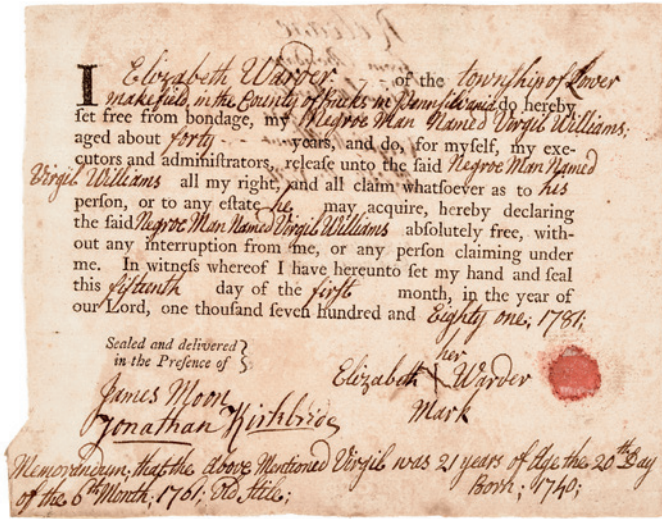 I Elizabeth Warder - - of the township of Lower
makefield, in the County of Bucks in Pennsilvania do hereby
ſet free from bondage, my Negroe Man Named Virgil Williams;
aged about forty - - - years, and do, for myſelf, my exe-
cutors and adminiſtrators, releaſe unto the ſaid Negroe Man Named
Virgil Williams all my right, and all claim whatſoever as to his
perſon, or to any eſtate he may acquire, hereby declaring
the ſaid Negroe Man Named Virgil Williams abſolutely free, with-
out any interruption from me, or any perſon claiming under
me. In witneſs whereof I have hereunto ſet my hand and ſeal
this fifteenth day of the firſt month, in the year of
our Lord, one thouſand ſeven hundred and Eighty one; 1781;
Sealed and delivered
in the Preſence of }
her
Elizabeth X Warder
Mark
James Moon
Jonathan Kirkbride
Memorandum; that the above Mentioned Virgil was 21 years of Age the 20th Day
of the 6th Month; 1761; Old Stile; Born; 1740;